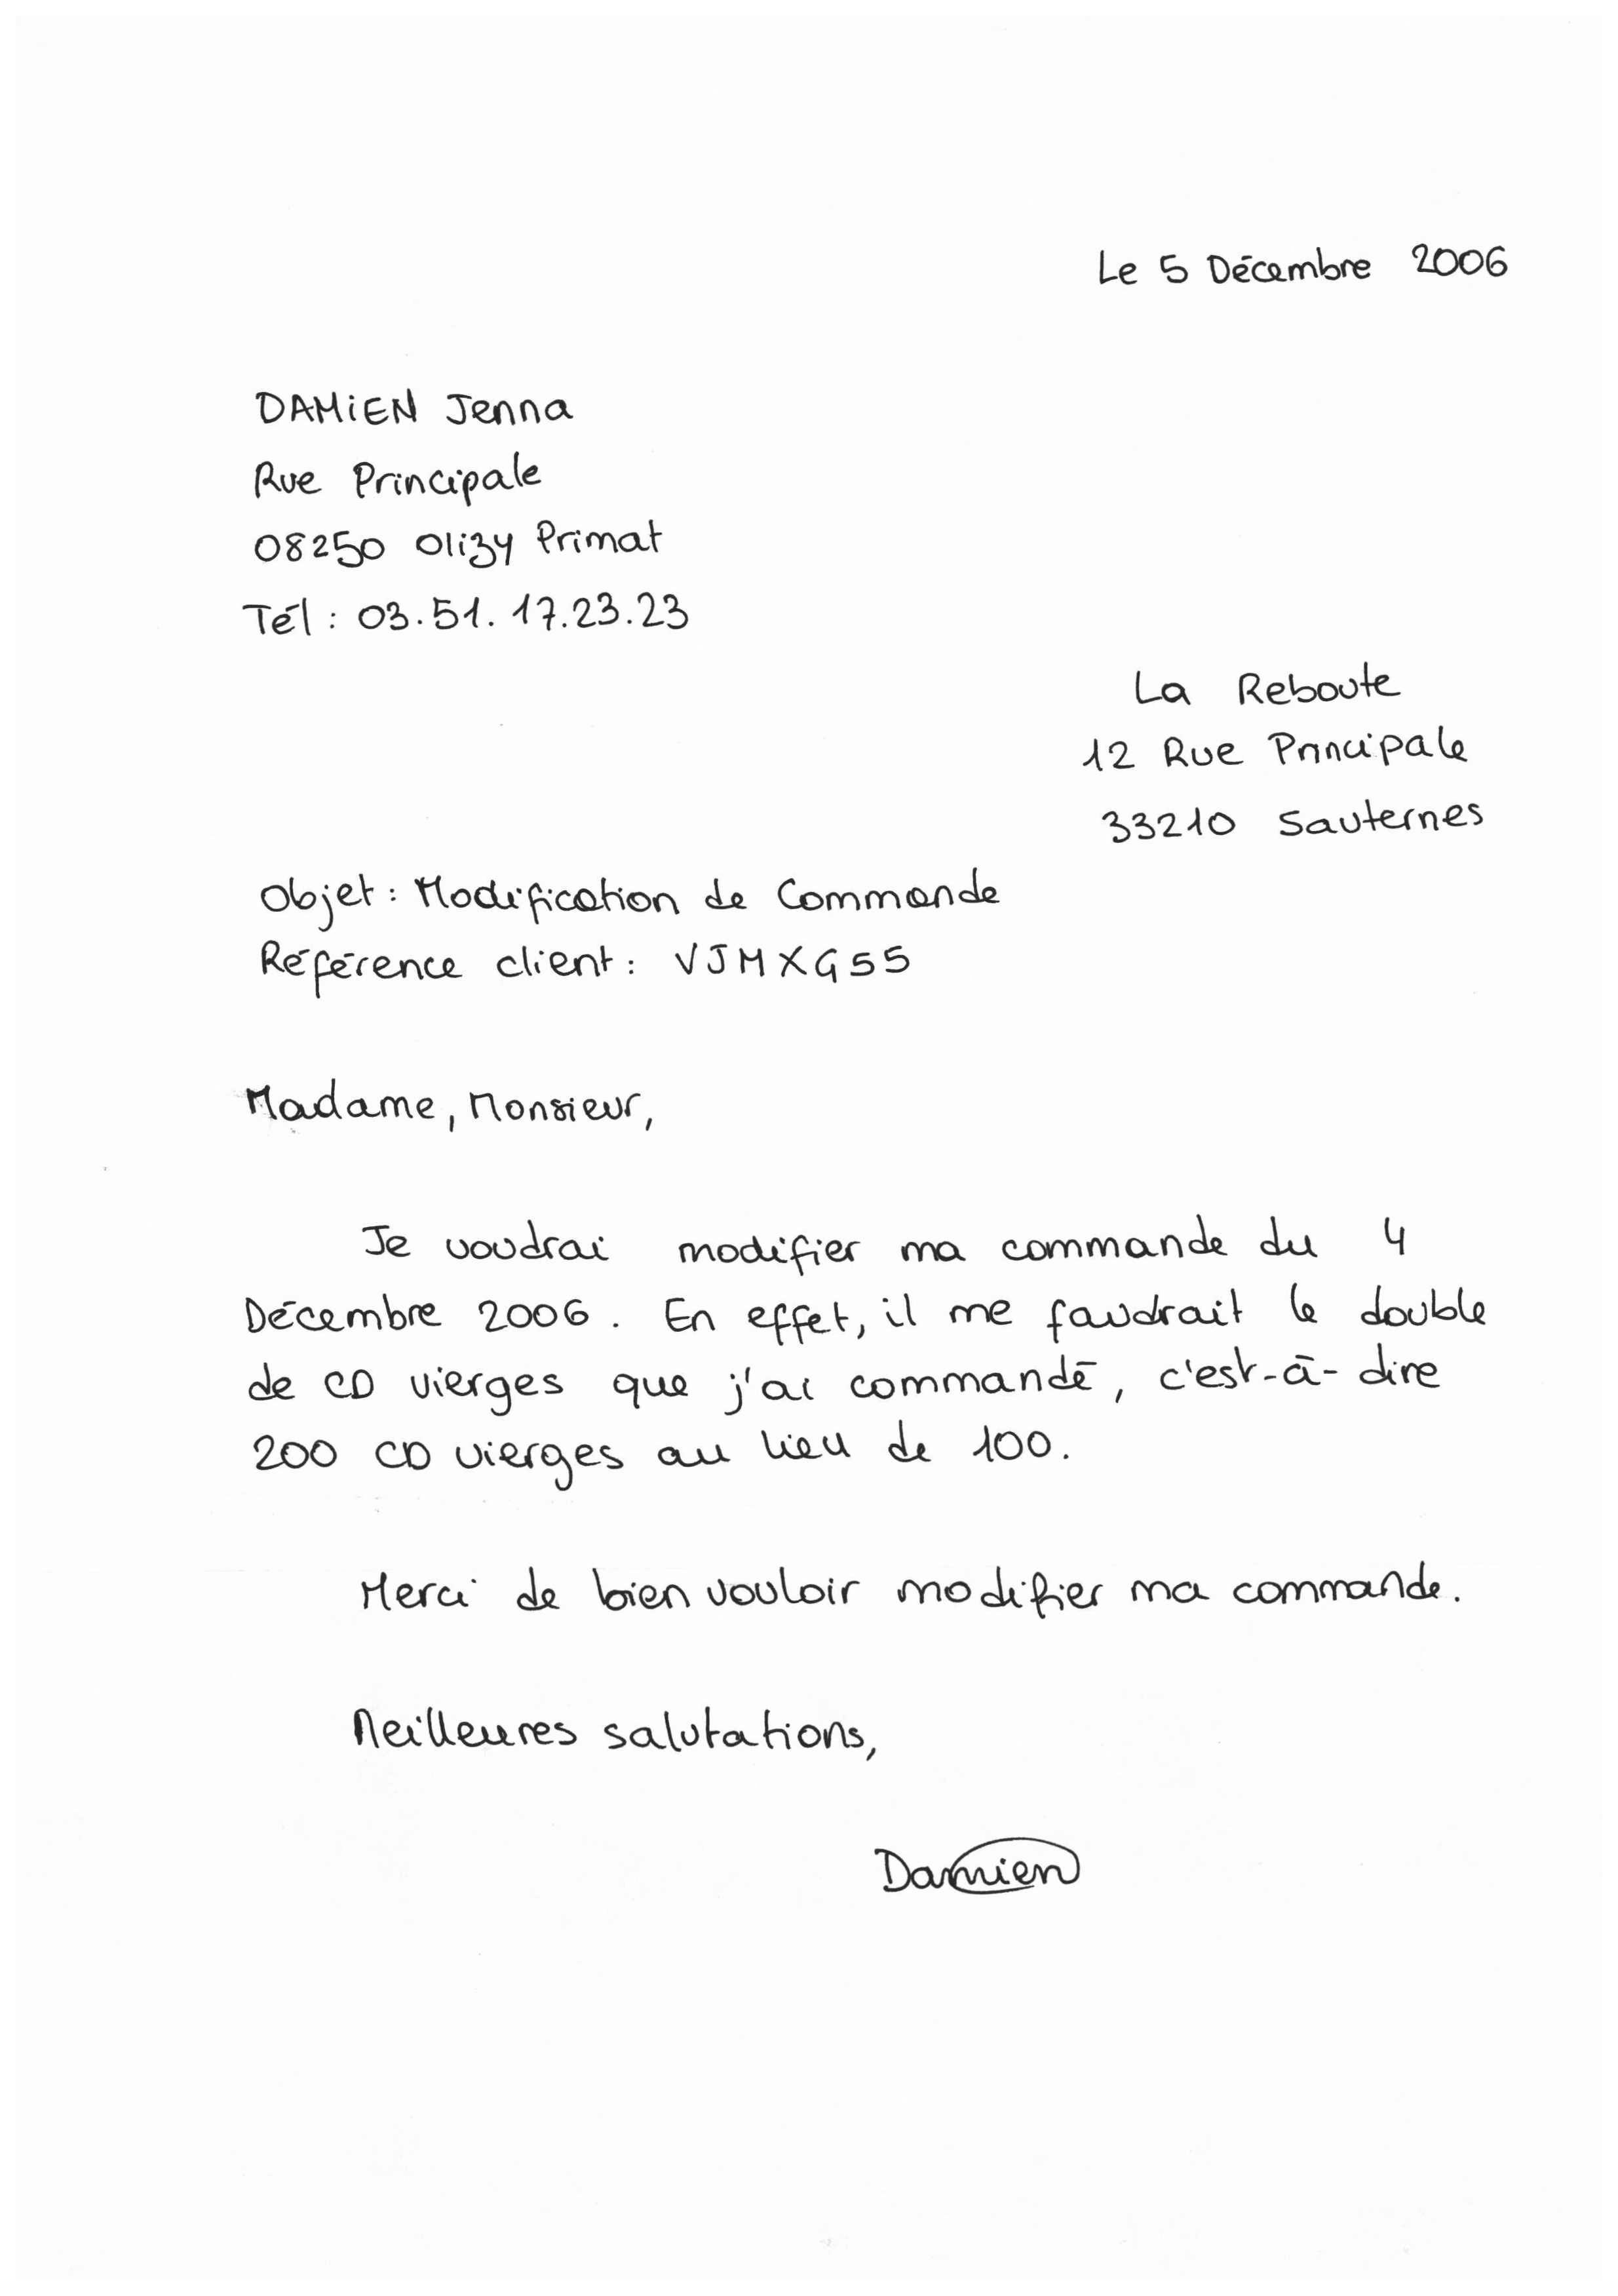 Le 5 Décembre 2006
DAMiEN Jenna
Rue Principale
08250 Olizy Primat
Tél : 03.51.17.23.23
La Reboute
12 Rue Principale
33210 Sauternes
Objet : Modification de Commande
Référence client : VJMXG55
Madame, Monsieur,
Je voudrai modifier ma commande du 4
Décembre 2006. En effet, il me faudrait le double
de CD vierges que j'ai commandé, c'est-à-dire
200 CD vierges au lieu de 100.
Merci de bien vouloir modifier ma commande.
Meilleures salutations,
Damien